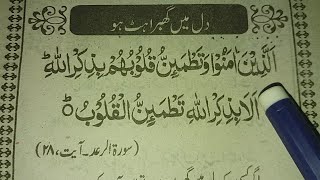 دل میں گھبراہٹ ہو
اَلَّذِیْنَ اٰمَنُوْا وَتَطْمَئِنُّ قُلُوْبُهُمْ بِذِكْرِ اللّٰهِ ؕ
اَلَا بِذِكْرِ اللّٰهِ تَطْمَئِنُّ الْقُلُوْبُ ۝
(سورۃ الرعد۔ آیت، ۲۸)